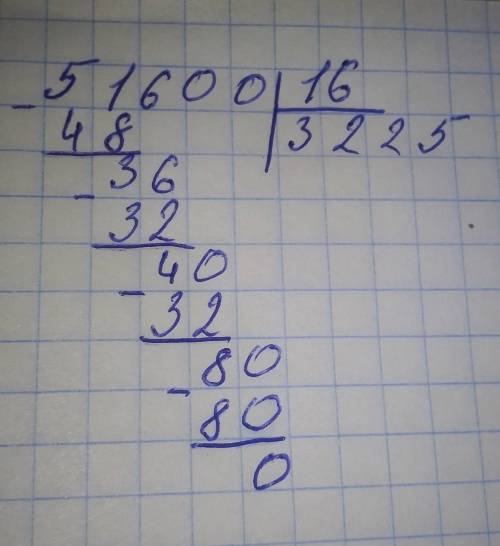 51600 16
- 48 3225
36
- 32
40
- 32
80
- 80
0